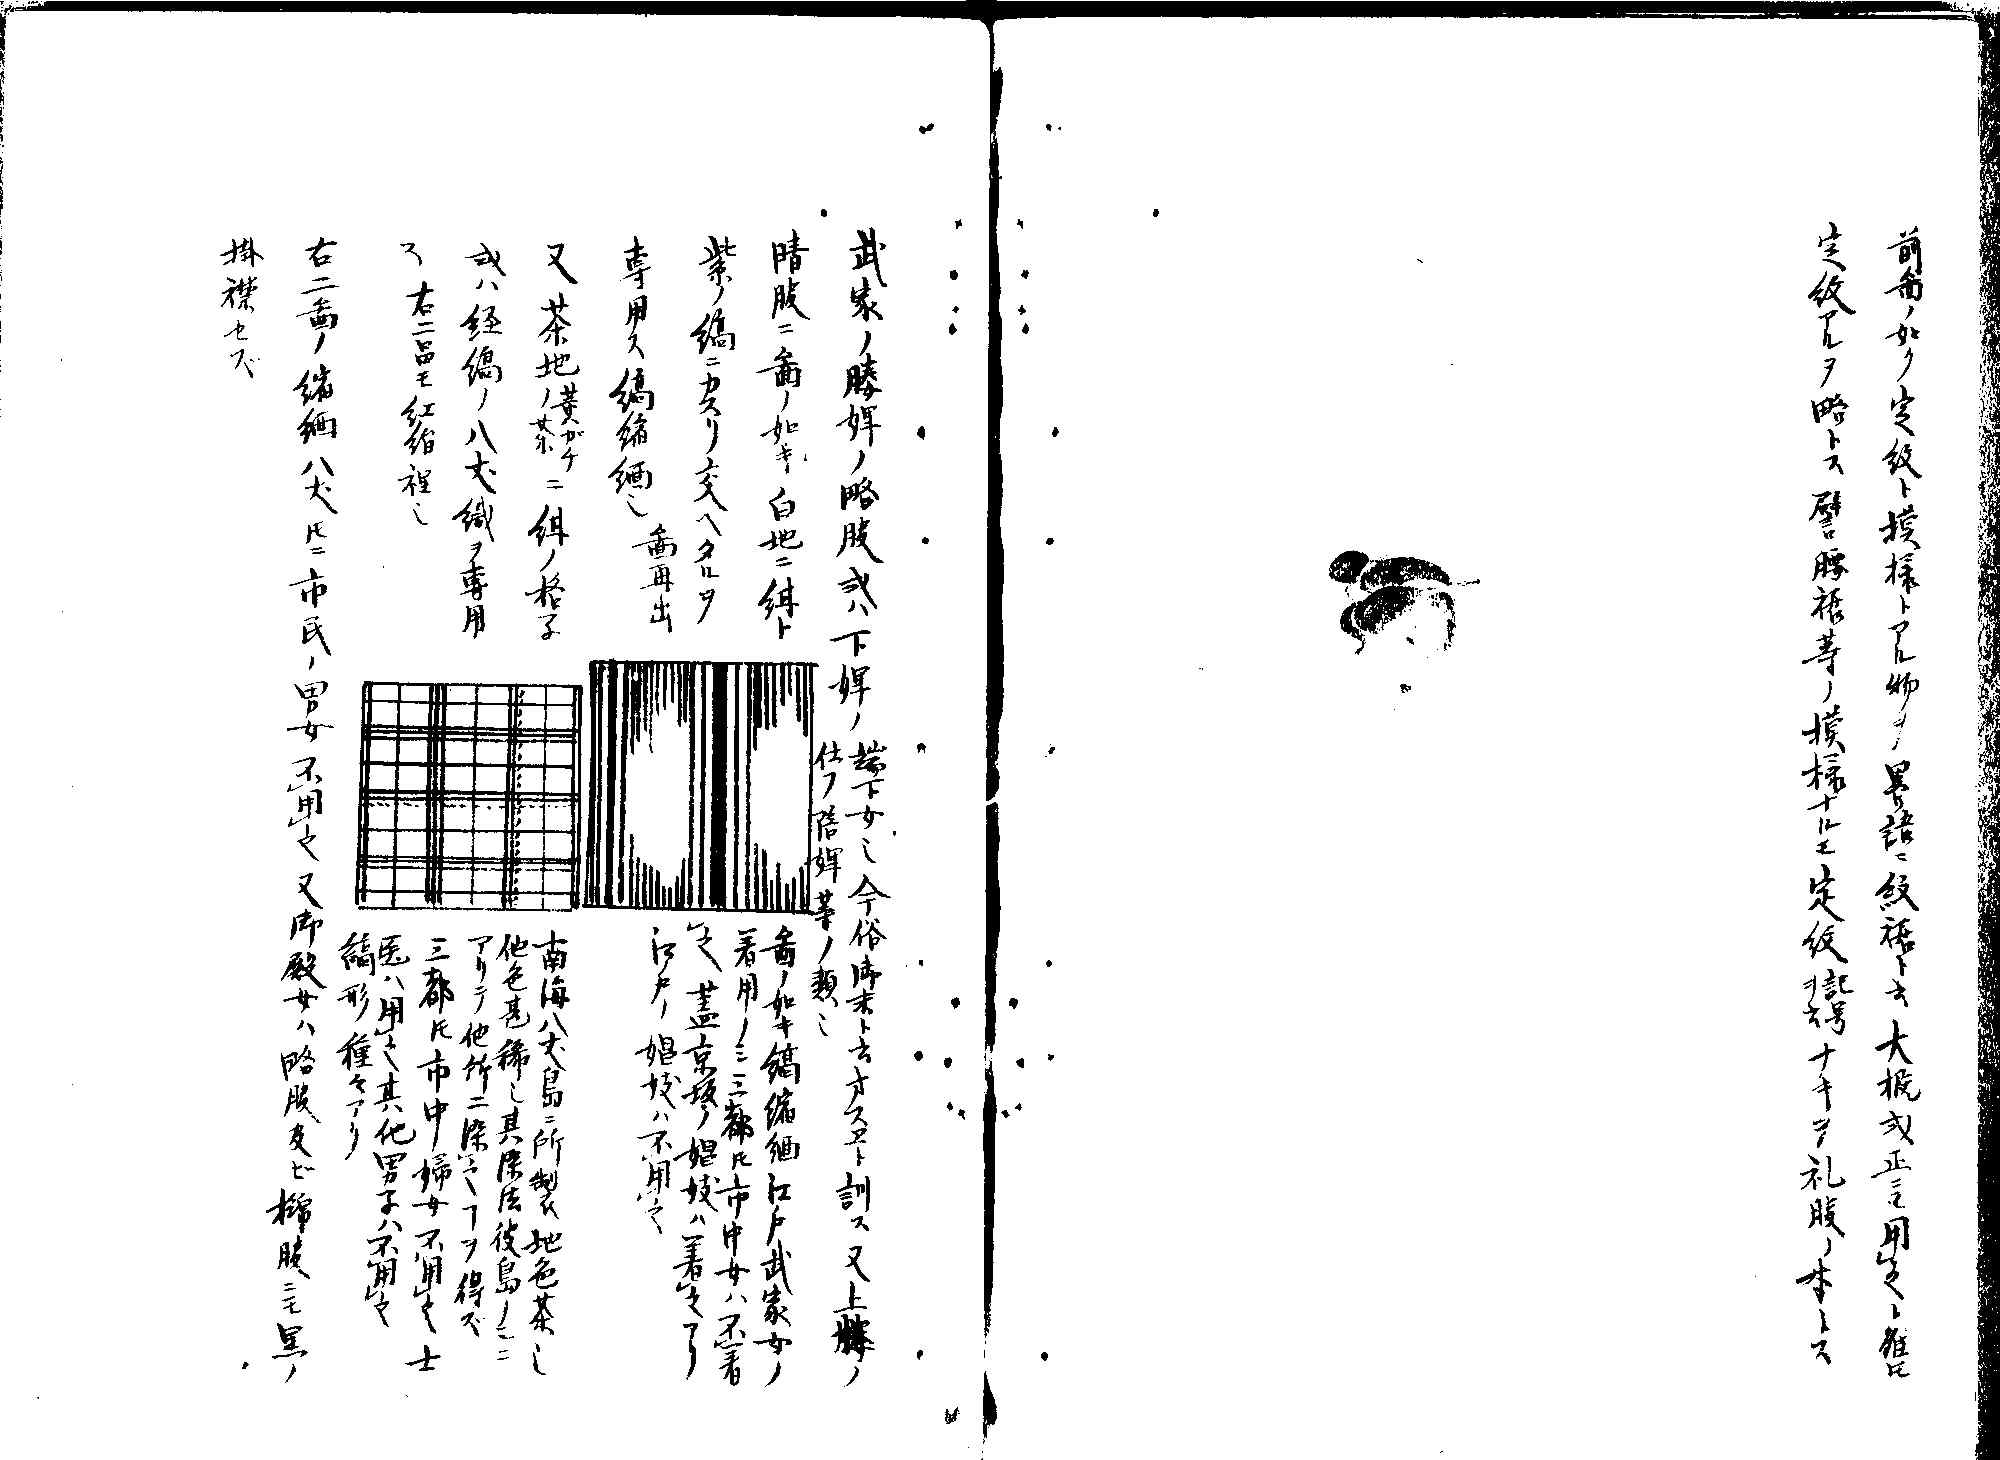 前畣ノ如ク定紋ト模様トアル物ヲ畧語ニ紋裾ト云大概或正ニモ用之ト雖𪜈
定紋アルヲ略トス譬ヒ腰裾等ノ模様ナルモ定紋
記号
ヲ云
ナキヲ礼服ノ本トス
武家ノ媵婢ノ略服或ハ下婢ノ
端下女也今俗御末ト云オスエト訓ス又上﨟ノ
仕フ陪婢等ノ類也
晴服ニ畣ノ如キ白地ニ緋ト
紫ノ縞ニカスリ交ヘタルヲ
専用ス縞縮緬也
畣再出
畣ノ如キ縞縮緬江戸武家女ノ
着用ノミ三都𪜈市中女ハ不着
之蓋京坂ノ娼妓ハ着之アリ
江戸ノ娼妓ハ不用之
又茶地ノ
黄ガチ
茶
ニ緋ノ格子
或ハ経縞ノ八丈織ヲ専用
ス 右二品モ紅絹裡也
南海八丈島ニ所製地色茶也
他色甚稀也其染法彼島ノミニ
アリテ他所ニ染コヿヲ得ズ
三都𪜈市中婦女不用之士
医ハ用之其他男子ハ不用之
縞形種々アリ
右二畣ノ縮緬八丈𪜈ニ市民ノ男女不用之又御殿女ハ略服及ビ褻服ニモ黒ノ
掛襟セズ